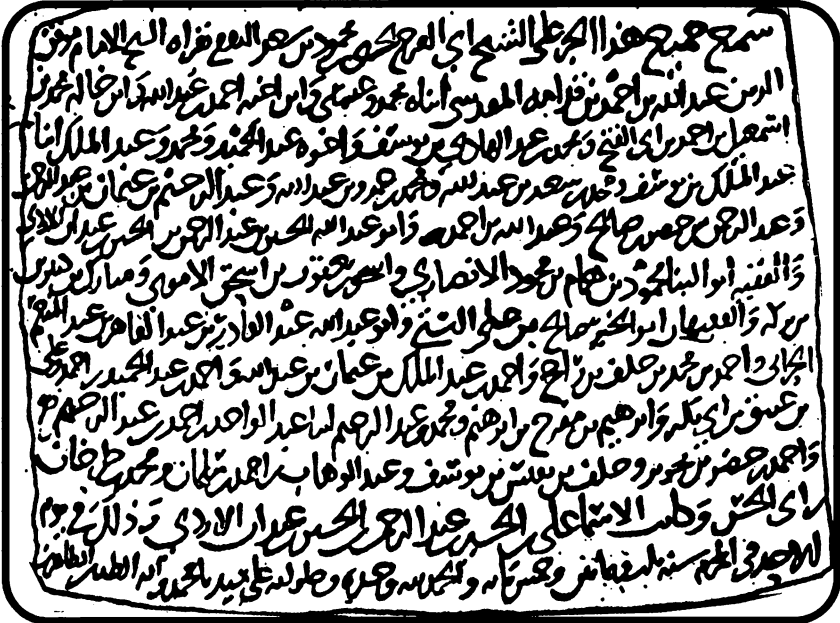 سمع جميع هذا الجزء على الشيخ ابي الفرج يحيى بن محمود بن سعد الثقفي بقراءة الشيخ الامام موفق
الدين عبد الله بن احمد بن قدامه المقدسي ابناه محمد وعيسى وابن اخيه احمد بن عبد الله وابن خاله محمد بن
اسمعيل بن احمد بن ابي الفتح ومحمد بن عبد الهادي بن يوسف واخوه عبد الحميد ومحمد وعبد الملك ابنا
عبد الملك بن يوسف ومحمد بن سعد بن عبد الله ومحمد بن حمد بن عبد الله وعبد الرحيم بن عثمان بن عبد الله
وعبد الرحمن بن خضر بن صالح وعبد الله بن احمد وابو عبد الله الحسين بن عبد الرحمن بن الحسين بن عبدان الازدي
والفقيه ابو الثنا محمود بن همام بن محمود الانصاري واسحق بن يعقوب بن اسحق الاموي ومبارك بن
بن بركه والفقيهان ابو الخير صالح بن علي وابو عبد الله عبد القادر بن عبد القاهر بن عبد المنعم
الحراني واحمد بن محمد بن خلف بن راجح واحمد بن عبد الملك بن عثمان بن عبد الله واحمد بن عبد الحميد
بن عتيق بن ابي بكر وابرهيم بن مفرج بن ابرهيم ومحمد وعبد الرحيم ابنا عبد الواحد بن احمد بن عبد الرحمن
واحمد بن خضر بن وخلف بن بن يوسف وعبد الوهاب بن احمد بن سلمان ومحمد بن
بن ابي الحسن وكاتب الاسماء علي بن الحسين بن عبد الرحمن بن الحسين بن عبدان الازدي وذلك في يوم
الاحد في المحرم سنه ثلث وثمانين وخمس مايه والحمد لله وحده وصلواته على سيدنا محمد واله الطيبين الطاهرين